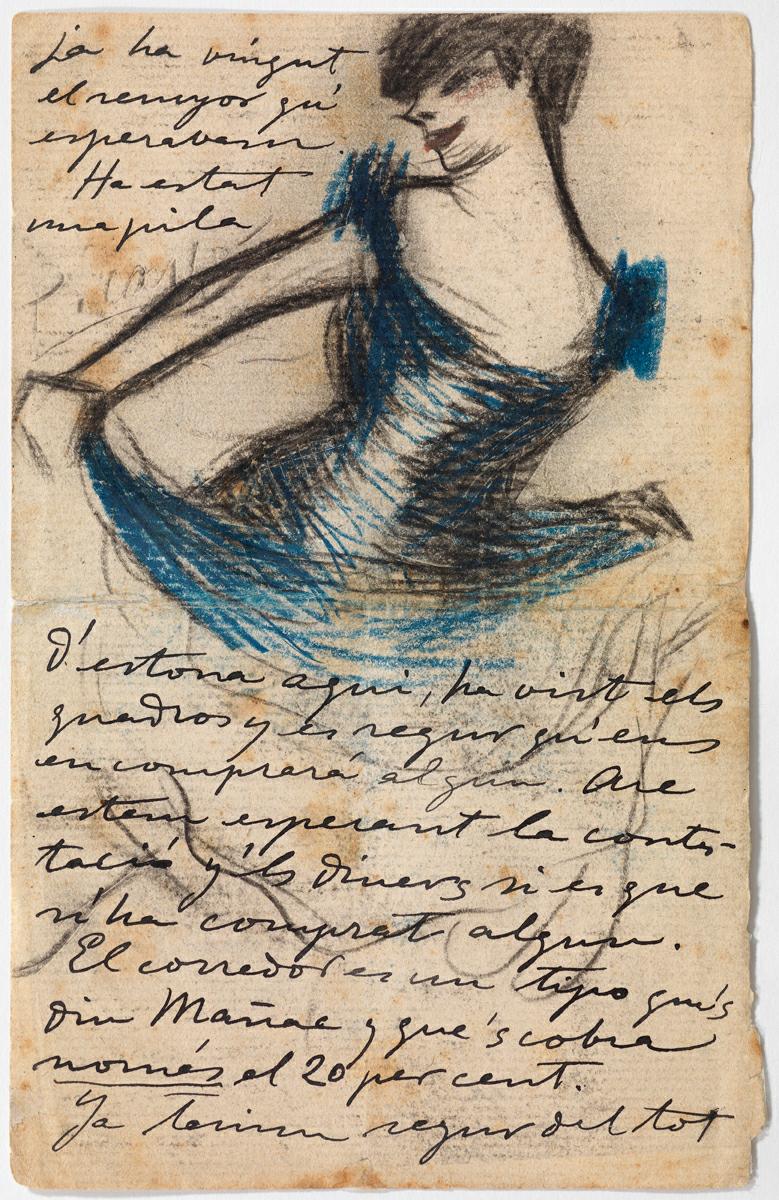 ja ha vingut
el senyor qu'
esperabam.
Ha estat
una pila
d'estona aqui, ha vist els
quadros y es segur qu'ens
en comprará algun. Are
estem esperant la contes-
tació y'ls diners si es que
n'ha comprat algun.
El corredor es un tipo que's
diu Mañac y que's cobra
només el 20 per cent.
Ja tenim segur del tot